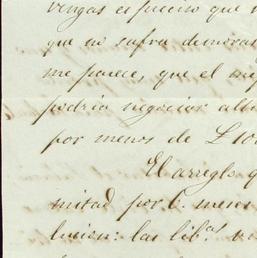 vengas es preciso que
que no sufra demoras
me parece, que el mej
podria negociar all
por menos de £ 10
El arreglo q
mitad por 6. meses
lucion: las lib.s